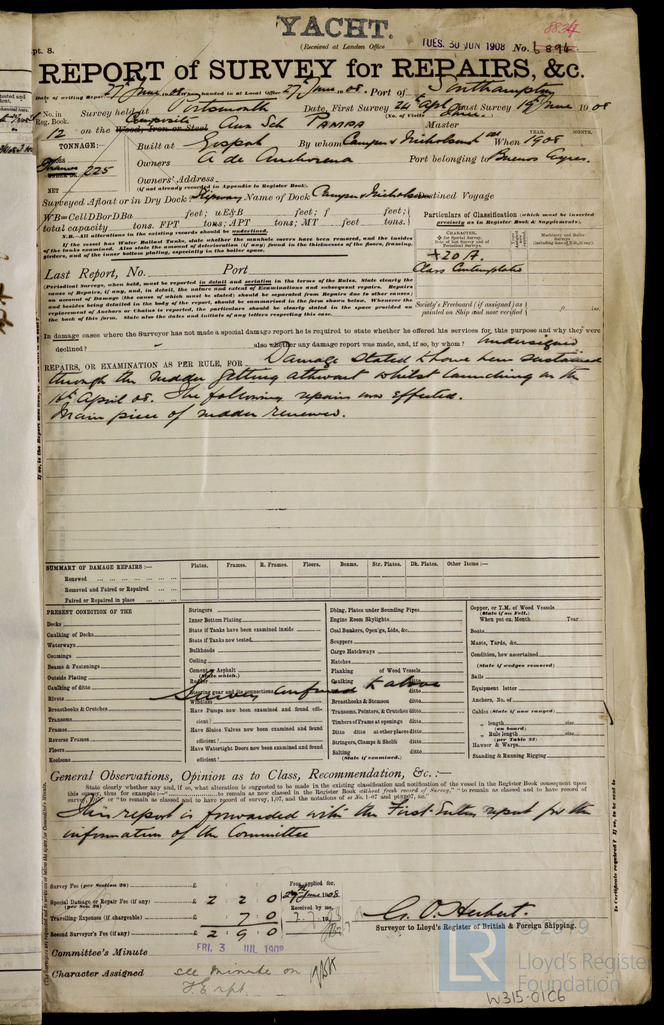 YACHT.
pt. 8.
(Received at London Office TUES. 30 JUN 1908 No. 6894 8834
REPORT of SURVEY for REPAIRS, &c.
Date of writing Report 27 June 08 When handed in at Local Office 27 June 08. Port of Southampton
No. in Reg. Book. Survey held at Portsmouth Date, First Survey 24 Apl Last Survey 19 June 1908
(No. of Visits)
12 on the Composite Wood, Iron or Steel Aux Sch PAMPA Master
TONNAGE: Built at Gosport By whom Camper & Nicholson When 1908
YEAR. MONTH.
225 Owners A de Anchorena Port belonging to Buenos Ayres.
NET Owners' Address
(if not already recorded in Appendix to Register Book.)
Surveyed Afloat or in Dry Dock Slipway Name of Dock Camper & Nicholsons Destined Voyage
WB=CellDBorDBa feet; uE&B feet; f feet;
total capacity tons. FPT tons; APT tons; MT feet tons.
N.B.—All alterations in the existing records should be underlined.
If the vessel has Water Ballast Tanks, state whether the manhole covers have been removed, and the insides
of the tanks examined. Also state the amount of deterioration (if any) found in the thickness of the floors, framing,
girders, and of the inner bottom plating, especially in the boiler space.
Particulars of Classification (which must be inserted
precisely as in Register Book & Supplements).
CHARACTER.
Machinery and Boiler Surveys
+20 A.
Class Contemplated
Society's Freeboard (if assigned) as
painted on Ship and now verified ft. ins.
Last Report, No. Port
(Periodical Surveys, when held, must be reported in detail and seriatim in the terms of the Rules. State clearly the
causes of Repairs, if any, and, in detail, the nature and extent of Examinations and subsequent repairs. Repairs
on account of Damage (the cause of which must be stated) should be separated from Repairs due to other causes;
and besides being detailed in the body of the report, should be summarised in the form shown below. Whenever the
replacement of Anchors or Chains is reported, the particulars should be clearly stated in the space provided on
the back of this form. State also the dates and initials of any letters respecting this case.
In damage cases where the Surveyor has not made a special damage report he is required to state whether he offered his services for this purpose and why they were
declined? also whether any damage report was made, and, if so, by whom? Undersigned
REPAIRS, OR EXAMINATION AS PER RULE, FOR Damage stated to have been sustained
through the rudder getting athwart whilst launching on the
April 08. The following repairs now effected.
Main piece of rudder renewed.
SUMMARY OF DAMAGE REPAIRS:— Plates. Frames. R. Frames. Floors. Beams. Str. Plates. Dk. Plates. Other Items:—
Renewed
Removed and Faired or Repaired
Faired or Repaired in place
PRESENT CONDITION OF THE
Decks
Caulking of Decks
Waterways
Coamings
Beams & Fastenings
Outside Plating
Caulking of ditto
Rivets
Breasthooks & Crutches
Transoms
Frames
Reverse Frames
Floors
Keelsons
Stringers
Inner Bottom Plating
State if Tanks have been examined inside
State if Tanks now tested
Bulkheads
Ceiling
Cement or Asphalt
(State which.)
Rudder
Steering gear and its connections
Windlass
Have Pumps now been examined and found efficient?
Have Sluice Valves now been examined and found efficient?
Have Watertight Doors now been examined and found efficient?
Dblng. Plates under Sounding Pipes
Engine Room Skylights
Coal Bunkers, Open'gs, Lids, &c.
Scuppers
Cargo Hatchways
Hatches
Planking of Wood Vessels
Caulking ditto
ditto
Breasthooks & Stemson ditto
Transoms, Pointers, & Crutches ditto
Timbers of Frame at openings ditto
Ditto ditto at other places ditto
Stringers, Clamps & Shelfs ditto
Salting ditto
(State if examined.)
Copper, or Y.M. of Wood Vessels
(State if on Felt.)
When put on, Month Year
Boats
Masts, Yards, &c.
Condition, how ascertained
(State if wedges removed)
Sails
Equipment letter
Anchors, No. of
Cables (State if now ranged)
„ length size
(on board)
„ Rule length size
(per Table 22)
Hawser & Warps
Standing & Running Rigging
Survey confined to above
General Observations, Opinion as to Class, Recommendation, &c.:—
State clearly whether any, and if so, what alteration is suggested to be made in the existing classification and notification of the vessel in the Register Book consequent upon
This report is forwarded with the First Entry report for the
information of the Committee
Survey Fee (per Section 28) £
Special Damage or Repair Fee (if any) £ 2 2 0
(per Sec. 28)
Travelling Expenses (if chargeable) £ 7 0
Second Surveyor's Fee (if any) £ 2 9 0
Fees applied for,
29 June 1908
Received by me,
G. O. Herbert.
Surveyor to Lloyd's Register of British & Foreign Shipping.
Committee's Minute FRI. 3 JUL 1908
Character Assigned see minute on
F.E rpt.
© 2019
LR Lloyd's Register
Foundation
W315-0106